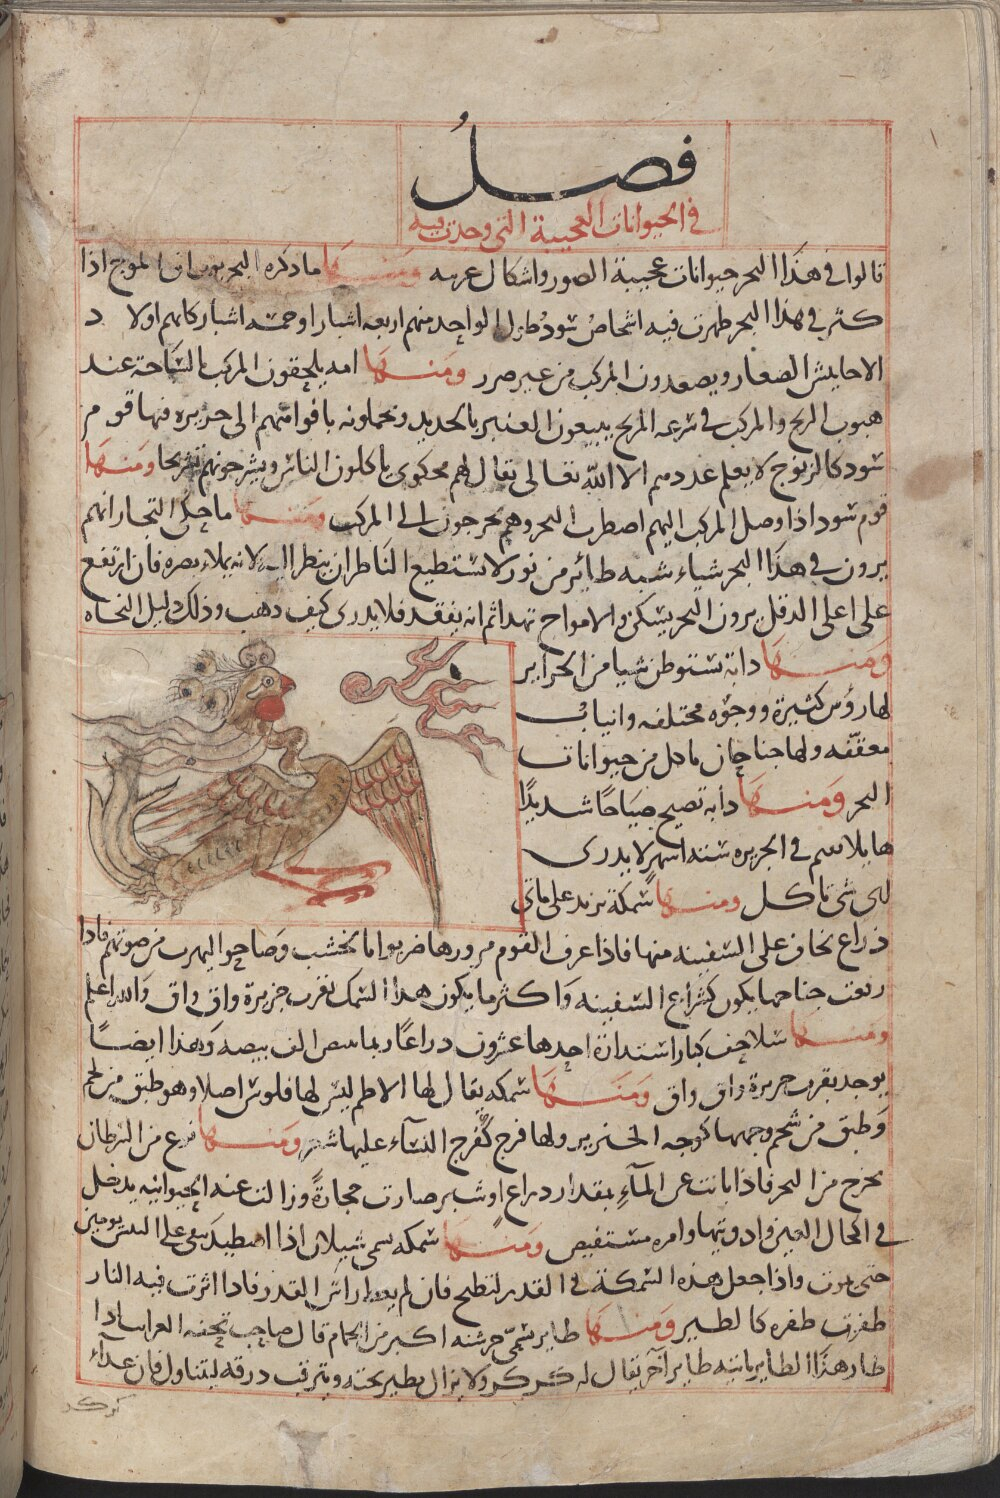 فصل
في الحيوانات العجيبة التي وجدت فيه
قالوا في هذا البحر حيوانات عجيبة الصور واشكال غريبه ومنها ما ذكره البحريون ان الموج اذا
كثر في هذا البحر ظهرت فيه اشخاص سود طول الواحد منهم اربعه اشبار او خمسه اشبار كانهم اولا د
الاحابش الصغار ويصعدون المركب من غير ضرر ومنها امه يلحقون المركب بالسباحة عند
هبوب الريح والمركب في سرعه الريح يبيعون العنبر بالحديد ويحملونه بافواههم الى جزيره فيها قوم
سود كالزنوج لا يعلم عددهم الا الله تعالى يقال لهم ياكلون الناس ويشرحونهم تشريحا ومنها
قوم سود اذا وصل المركب اليهم اضطرب البحر وهم يخرجون الى المركب ومنها ما حكى التجار انهم
يرون في هذا البحر شياء شبه طائر من نور لا يستطيع الناظر ان ينظر اليه لانه يملاء بصره فان ارتفع
على اعلى الدقل يرون البحر يسكن والامواج تهدا ثم انه يفقد فلا يدرى كيف ذهب وذلك دليل النجاه
ومنها دابة تستوطن شيا من الجزاير
لها رؤس كثيرة ووجوه مختلفه وانياب
معقفه ولها جناحان تاكل من حيوانات
البحر ومنها دابة تصيح صياحا شديدا
هايلا في الجزيره ستة اشهر لا يدرى
اى شى تاكل ومنها سمكة تزيد على مائتى
ذراع يخاف على السفينه منها فاذا عرف القوم مرورها ضربوا بالخشب وصاحوا لتهرب من صوتهم فاذا
رفعت جناحها يكون كشراع السفينه واكثر ما يكون هذا السمك بقرب جزيرة واق واق والله اعلم
ومنها سلاحف كبار استدارة احدها عشرون ذراعا ربما تبيض الف بيضه وهذا ايضا
يوجد بقرب جزيرة واق واق ومنها سمكه يقال لها الاطم ليس لها فلوس اصلا وهو طبق من لحم
وطبق من شحم وجهها كوجه الخنزير ولها فرج كفرج النساء عليها شعر ومنها نوع من السرطان
يخرج من البحر فاذا بانت عن الماء بمقدار ذراع او شبر صارت حجارة وزالت عنه الحيوانيه يدخل
في اكحال العين وادويتها وامره مستفيض ومنها سمكه تسمى شيلان اذا اصطيدت تبقى على اليبس يومين
حتى تموت واذا جعل هذه السمكة في القدر لتطبخ فان لم يغط راس القدر فاذا اثرت فيه النار
طفرت طفره كالطير ومنها طاير تسمى خرشنه اكبر من الحمام قال صاحب تحفه الغرايب اذا
طار هذا الطاير ياتيه طاير آخر يقال له كركر ولا يزال يطير تحته ويترقب درقه ليتناول فان غذاء
كركر